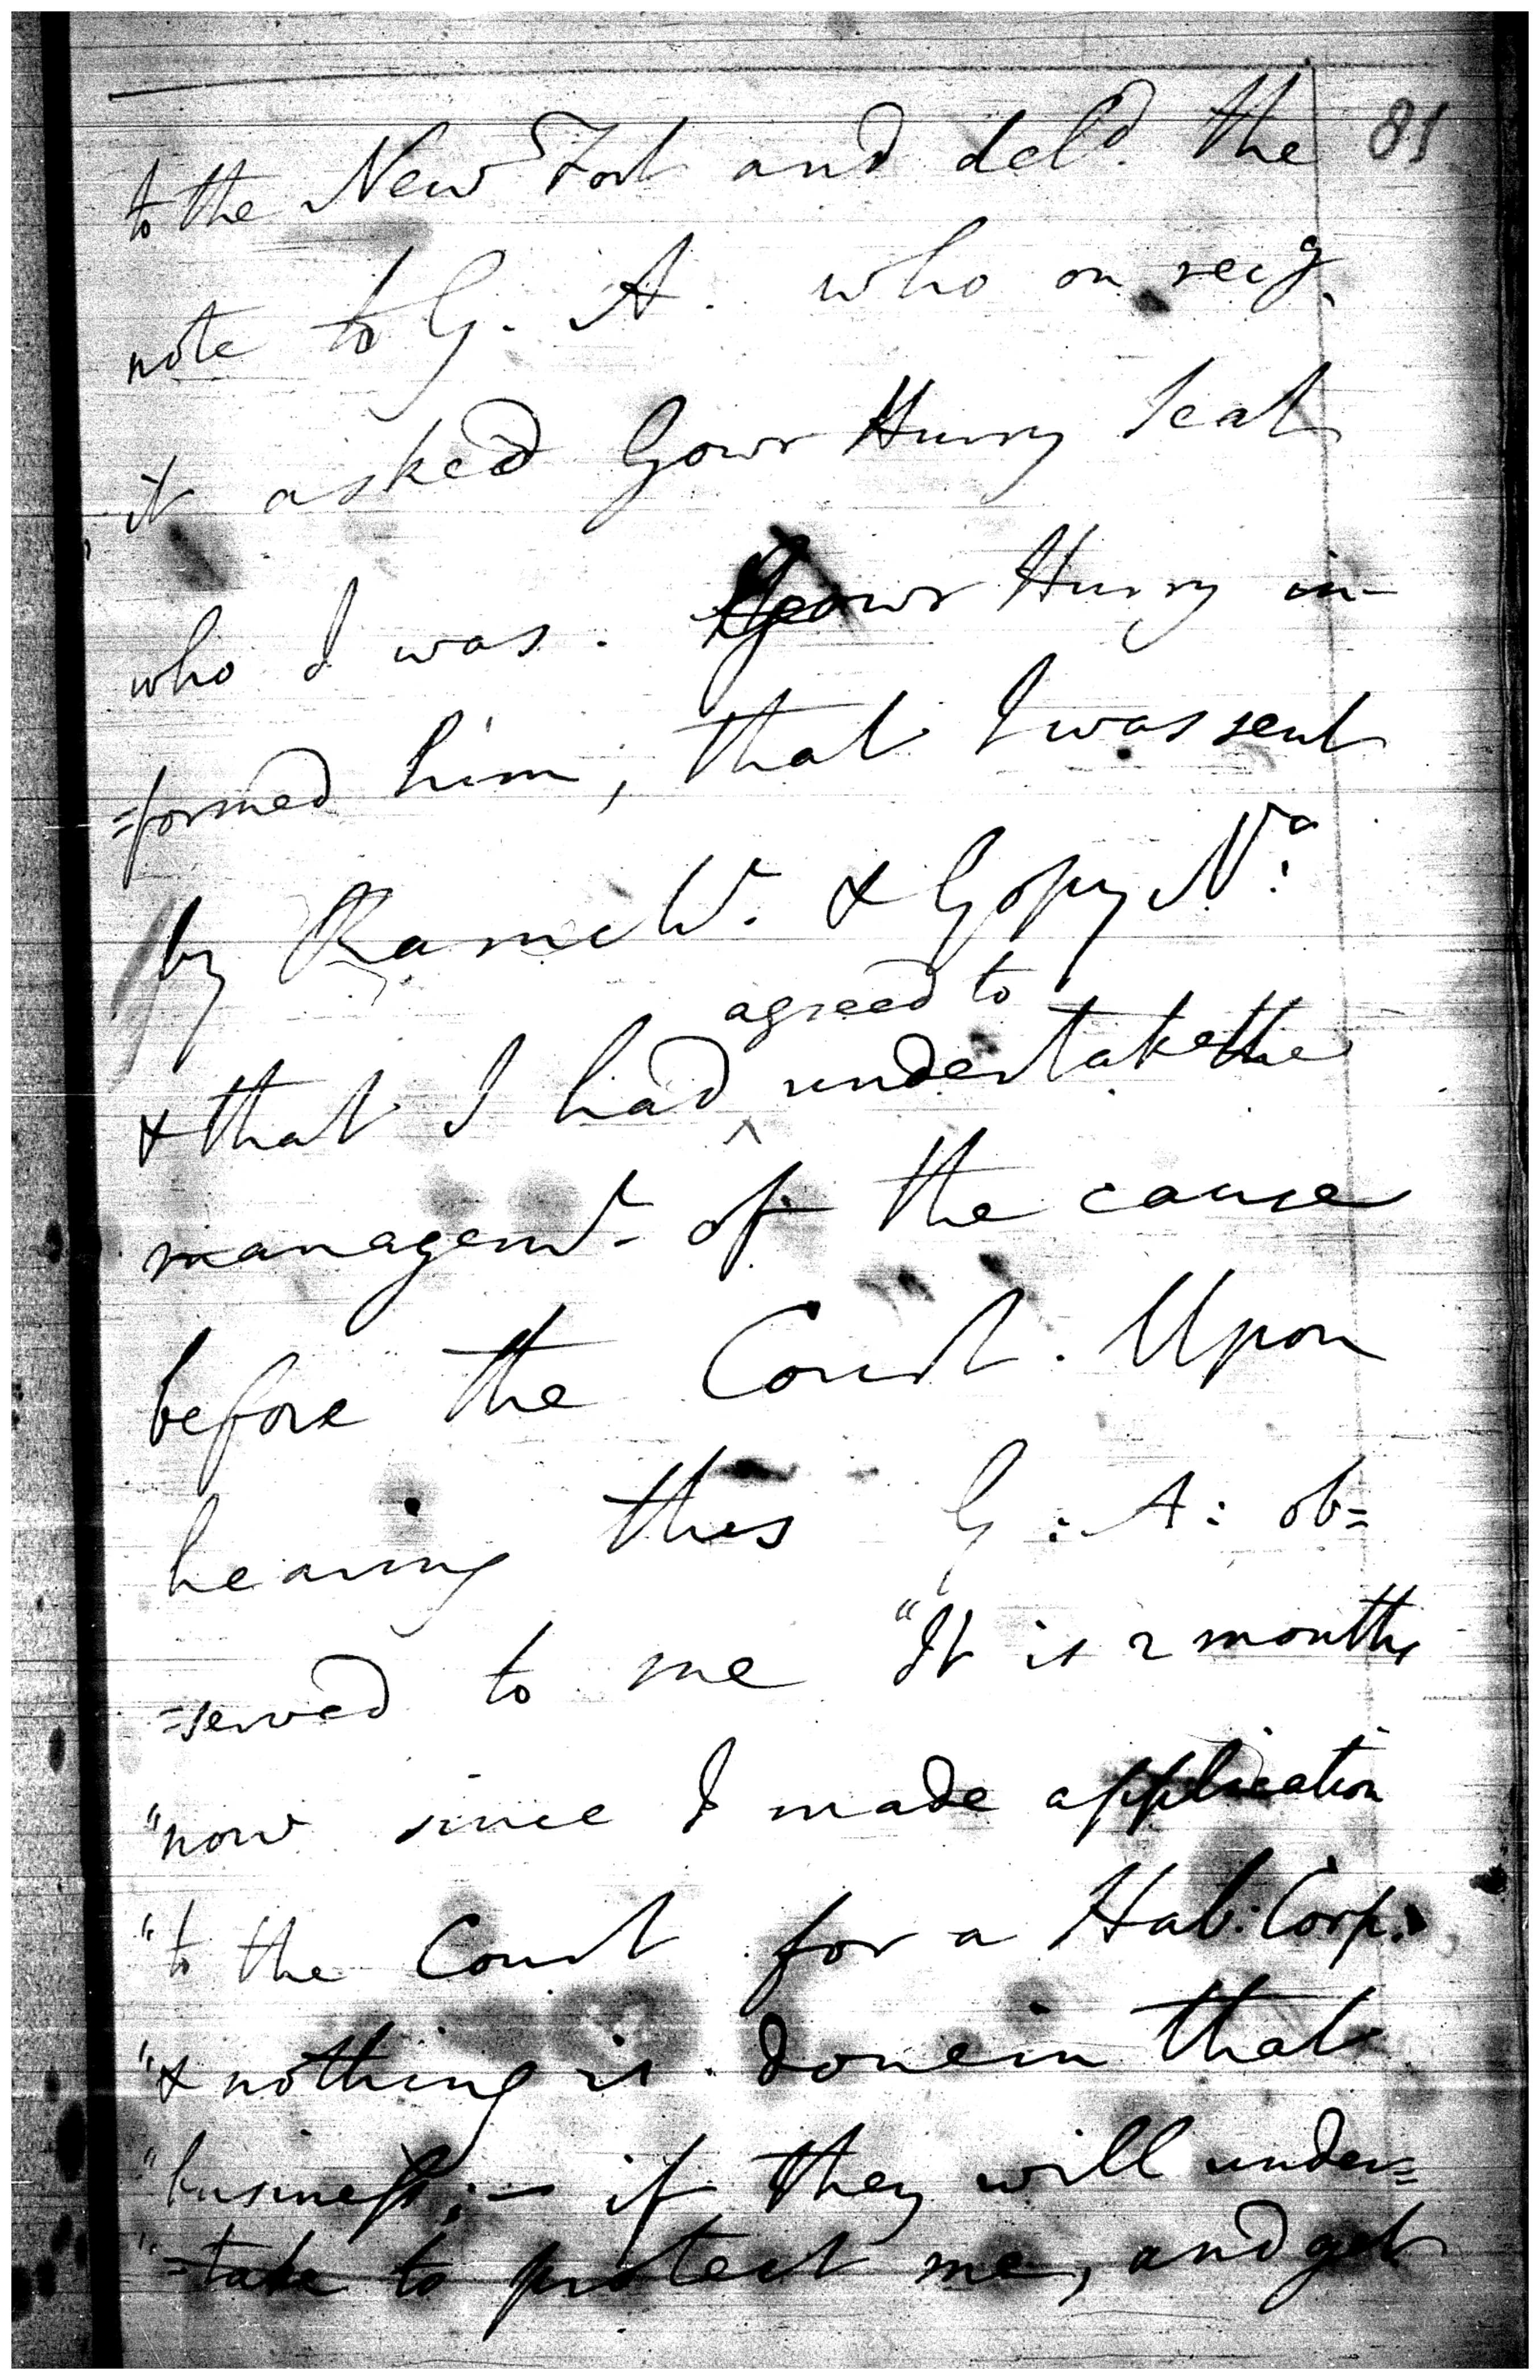 81
to the New Fort and deld. the
note to G. A. who on recg.
it asked Gowr Hurry Seal
who I was. Gowr Hurry in-
=formed him, that I was sent
by Ram & Gopy Na:
agreed to
& that I had ^ undertake the
managemt. of the cause
before the Court. Upon
hearing this G: A: ob=
=served to me "It is 2 months
"now since I made application
"to the Court for a Hab: Corp:
"& nothing is done in that
"business; – if they will under=
"=take to protect me, and get